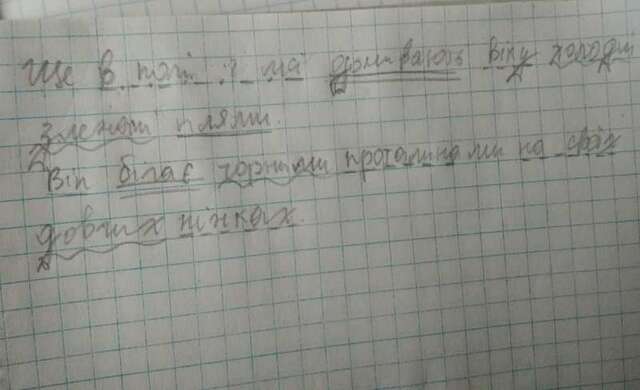 Ще в полі і маї доживають віку холодні
зленіші плями.
Він білає чорними прогалинами на своїх
довгих нінках.